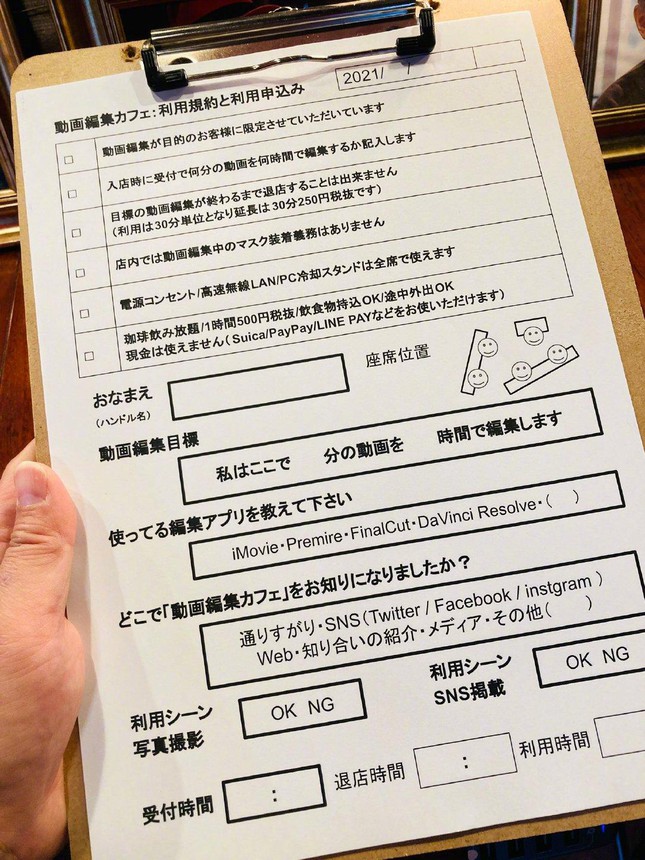 動画編集カフェ:利用規約と利用申込み
2021/ /
□ 動画編集が目的のお客様に限定させていただいています
□ 入店時に受付で何分の動画を何時間で編集するか記入します
□ 目標の動画編集が終わるまで退店することは出来ません
(利用は30分単位となり延長は30分250円税抜です)
□ 店内では動画編集中のマスク装着義務はありません
□ 電源コンセント/高速無線LAN/PC冷却スタンドは全席で使えます
□ 珈琲飲み放題/1時間500円税抜/飲食物持込OK/途中外出OK
現金は使えません(Suica/PayPay/LINE PAYなどをお使いただけます)
おなまえ
(ハンドル名)
座席位置
動画編集目標
私はここで 分の動画を 時間で編集します
使ってる編集アプリを教えて下さい
iMovie・Premire・FinalCut・DaVinci Resolve・( )
どこで「動画編集カフェ」をお知りになりましたか?
通りすがり・SNS(Twitter / Facebook / instgram )
Web・知り合いの紹介・メディア・その他( )
利用シーン
写真撮影
OK NG
利用シーン
SNS掲載
OK NG
受付時間
:
退店時間
:
利用時間